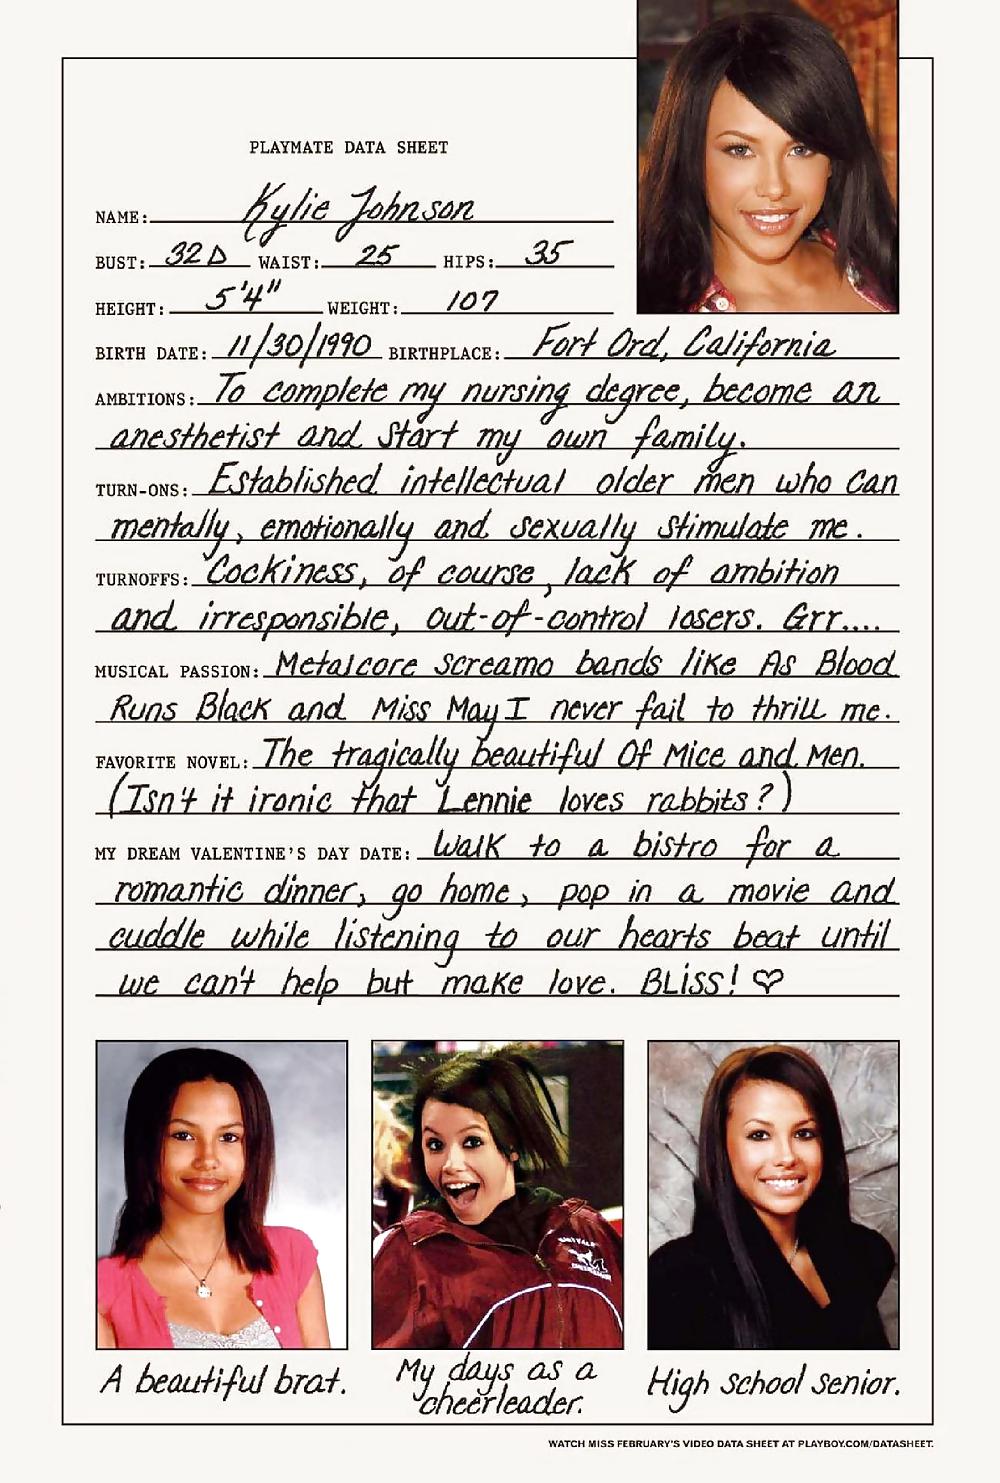 PLAYMATE DATA SHEET
NAME: Kylie Johnson
BUST: 32D WAIST: 25 HIPS: 35
HEIGHT: 5'4" WEIGHT: 107
BIRTH DATE: 11/30/1990 BIRTHPLACE: Fort Ord, California
AMBITIONS: To complete my nursing degree, become an
anesthetist and start my own family.
TURN-ONS: Established intellectual older men who can
mentally, emotionally and sexually stimulate me.
TURNOFFS: Cockiness, of course, lack of ambition
and irresponsible, out-of-control losers. Grr....
MUSICAL PASSION: Metalcore screamo bands like As Blood
Runs Black and Miss May I never fail to thrill me.
FAVORITE NOVEL: The tragically beautiful Of Mice and Men.
(Isn't it ironic that Lennie loves rabbits?)
MY DREAM VALENTINE'S DAY DATE: Walk to a bistro for a
romantic dinner, go home, pop in a movie and
cuddle while listening to our hearts beat until
we can't help but make love. BLiSS! ♡
A beautiful brat.
My days as a
cheerleader.
High school senior.
WATCH MISS FEBRUARY'S VIDEO DATA SHEET AT PLAYBOY.COM/DATASHEET.